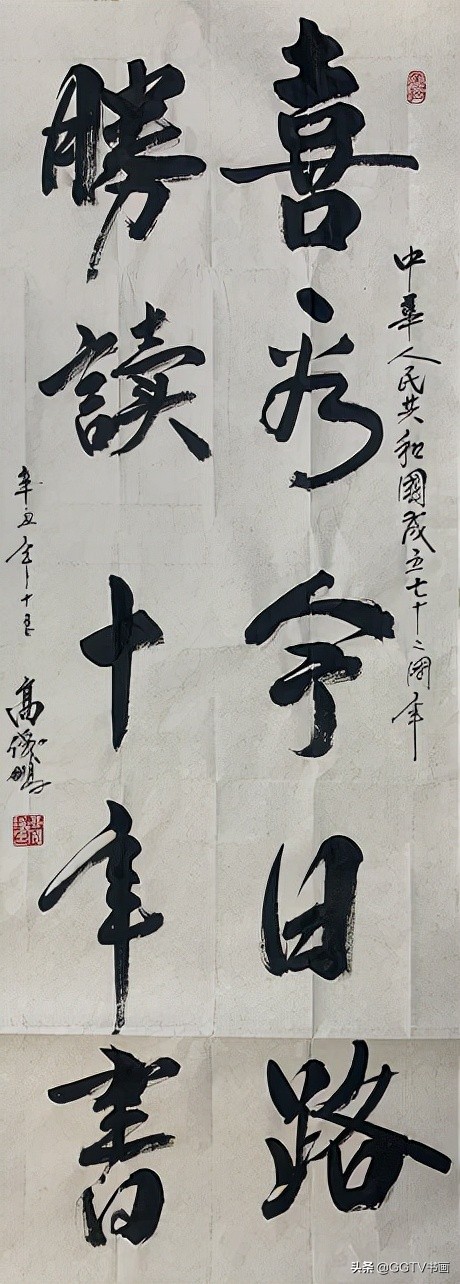 中華人民共和國成立七十二周年
喜為今日路
勝讀十年書
辛丑年十月
高俊鵬
头条 @GGTV书画